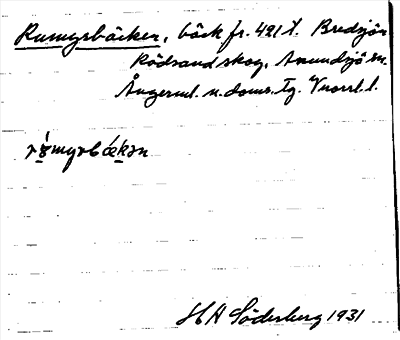 Rumyrbäcken, bäck fr. 421 t. Bredsjön
Rödsand skog, Anundsjö sn.
Ångerml. n. doms. tg. Vnorrl. l.
rŏ́myrbǽkən
H A Söderberg 1931